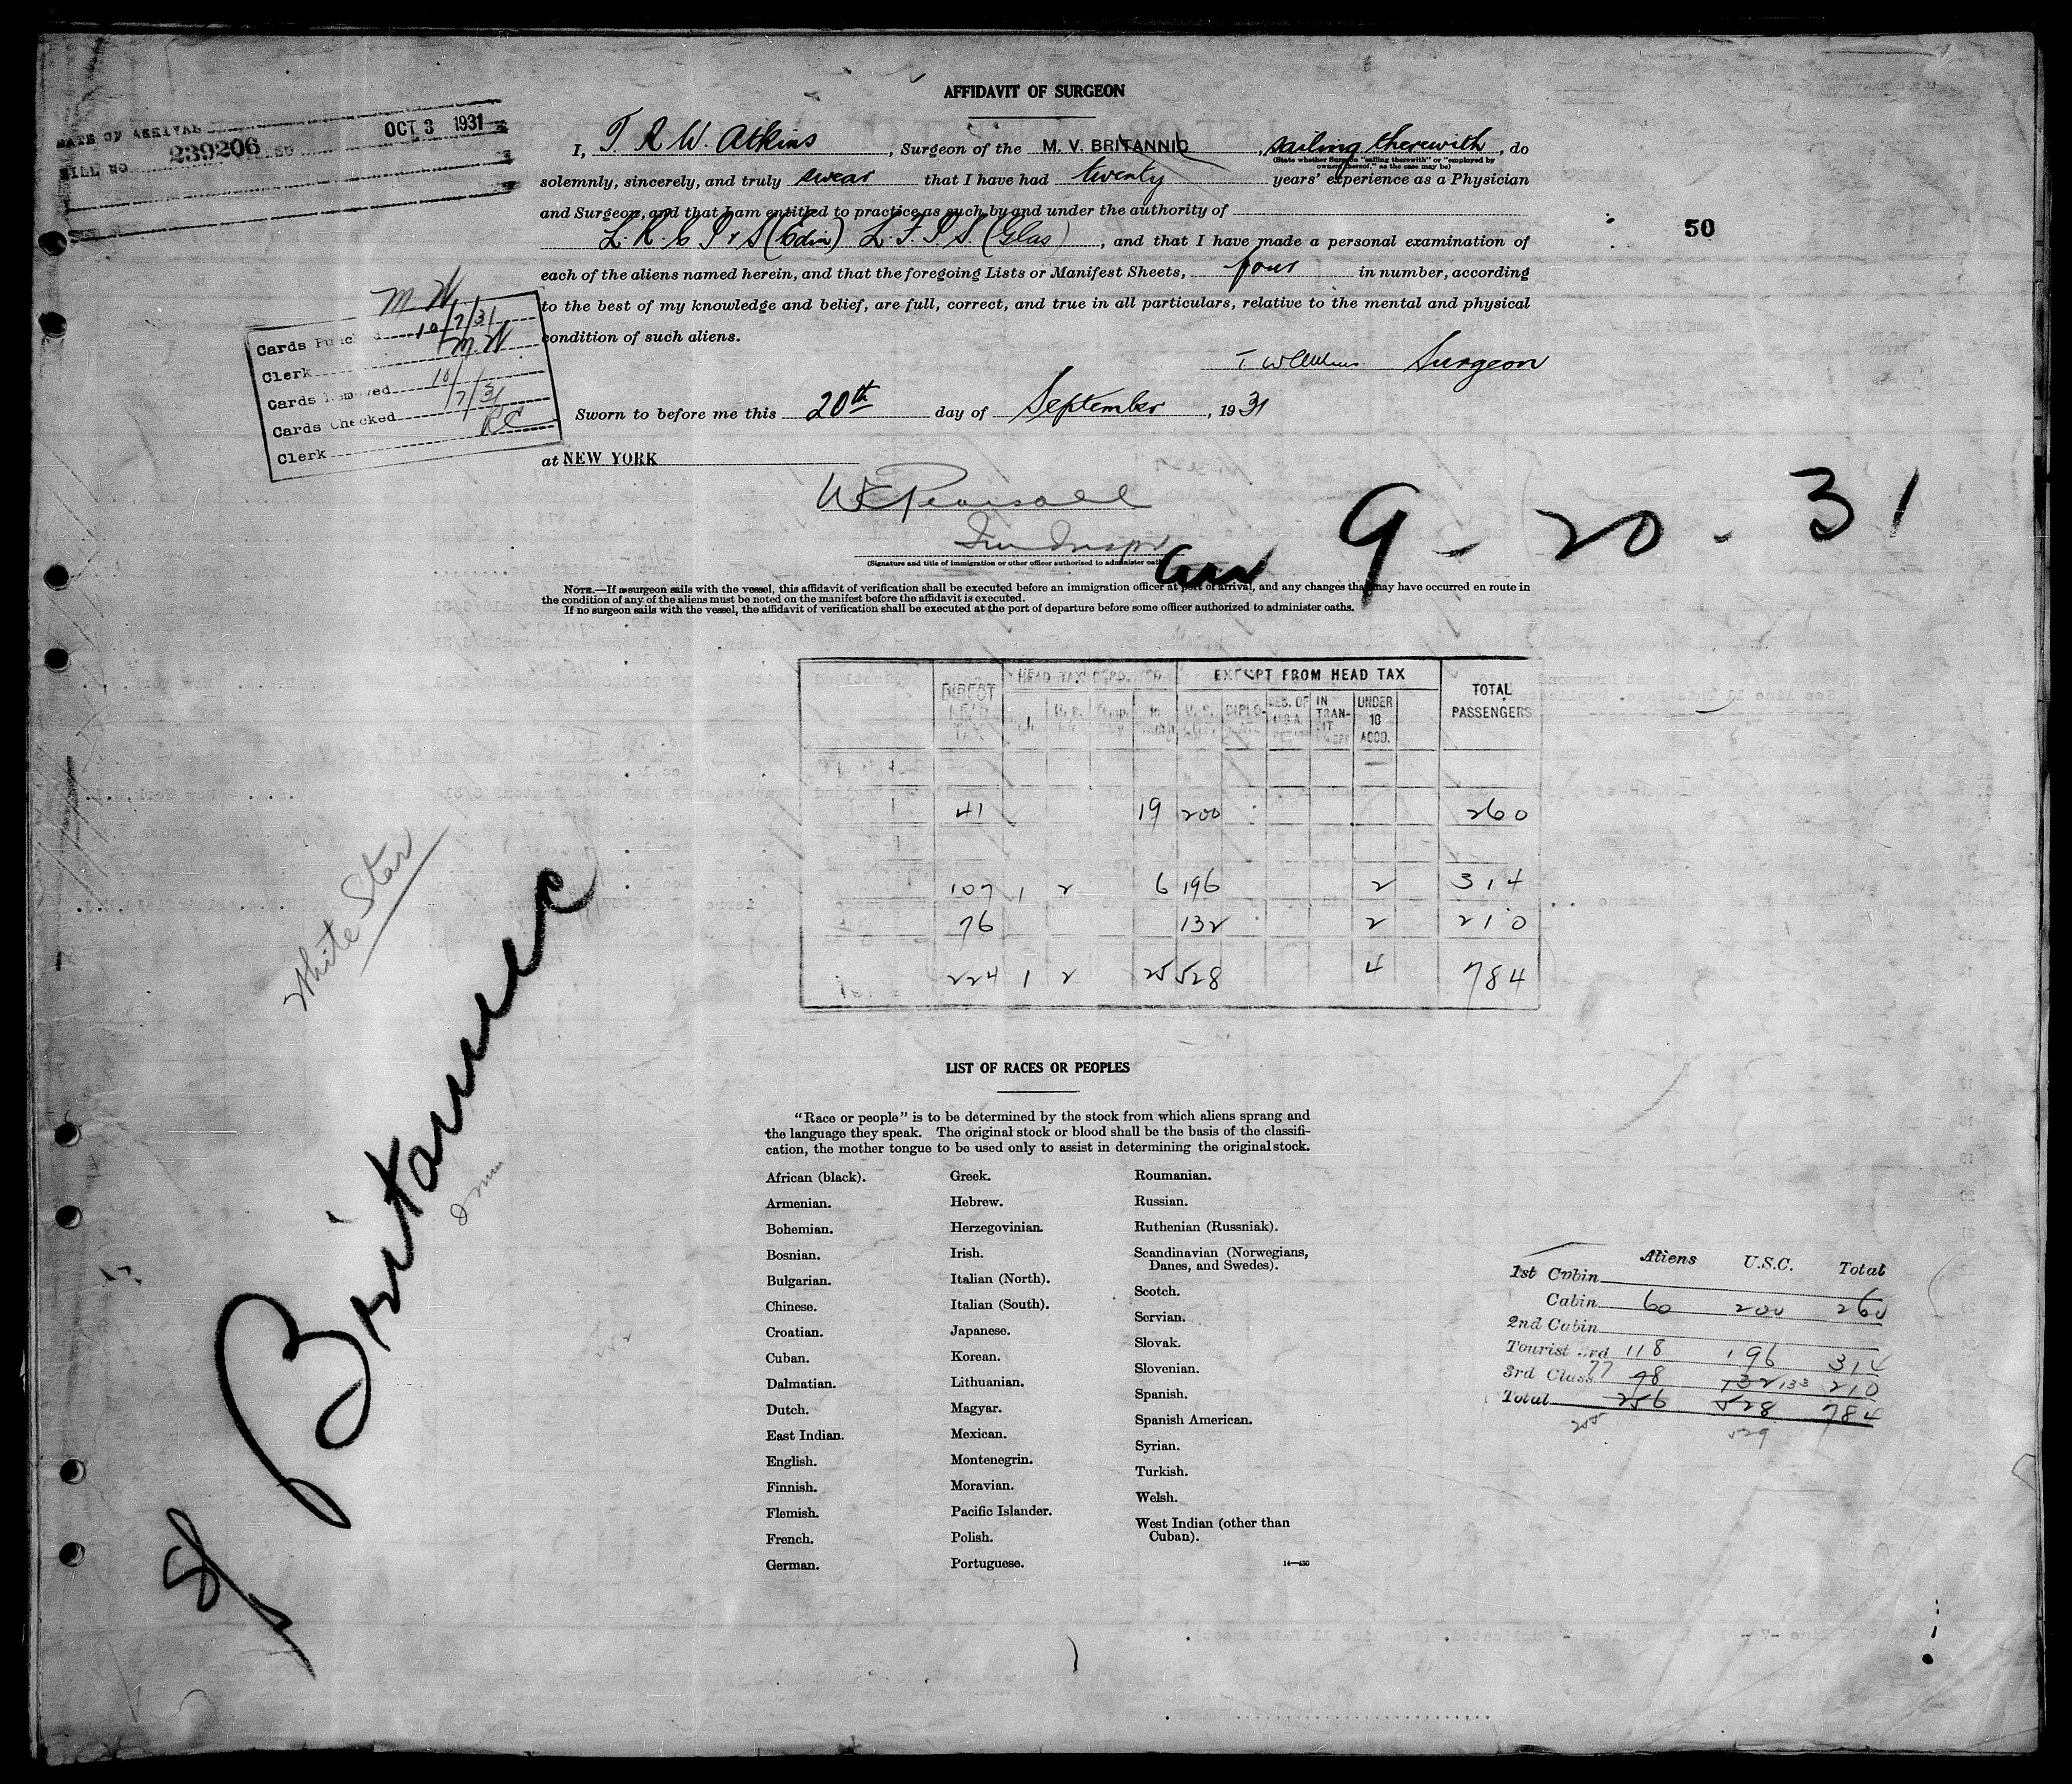 AFFIDAVIT OF SURGEON
DATE OF ARRIVAL OCT 3 1931
BILL NO. 239206
I, T R W. Atkins, Surgeon of the M. V. BRITANNIC, sailing therewith, do
(State whether Surgeon "sailing therewith" or "employed by
owners thereof," as the case may be)
solemnly, sincerely, and truly swear that I have had twenty years' experience as a Physician
and Surgeon, and that I am entitled to practice as such by and under the authority of
L. R. C P & S (Edin) L. F. P S. (Glas), and that I have made a personal examination of
50
each of the aliens named herein, and that the foregoing Lists or Manifest Sheets, four in number, according
to the best of my knowledge and belief, are full, correct, and true in all particulars, relative to the mental and physical
condition of such aliens.
Surgeon
M W
Cards Punched 10/7/31
Clerk M. W
Cards Removed 10/
Cards Checked 7/31
Clerk RC
Sworn to before me this 20th day of September, 1931
at NEW YORK
W E Pearsall
(Signature and title of immigration or other officer authorized to administer oath
9 - 20 - 31
NOTE.—If a surgeon sails with the vessel, this affidavit of verification shall be executed before an immigration officer at port of arrival, and any changes that may have occurred en route in
the condition of any of the aliens must be noted on the manifest before the affidavit is executed.
If no surgeon sails with the vessel, the affidavit of verification shall be executed at the port of departure before some officer authorized to administer oaths.
DIRECT HEAD TAX EXEMPT FROM HEAD TAX TOTAL PASSENGERS
HEAD TAX U. S. DIPLO- RES. OF U.S.A. IN TRAN- SIT UNDER 16 ACCD.
41 19 200 260
107 1 2 6 196 2 314
76 132 2 210
224 1 2 25 528 4 784
White Star
Britannic
LIST OF RACES OR PEOPLES
"Race or people" is to be determined by the stock from which aliens sprang and
the language they speak. The original stock or blood shall be the basis of the classifi-
cation, the mother tongue to be used only to assist in determining the original stock.
African (black).
Armenian.
Bohemian.
Bosnian.
Bulgarian.
Chinese.
Croatian.
Cuban.
Dalmatian.
Dutch.
East Indian.
English.
Finnish.
Flemish.
French.
German.
Greek.
Hebrew.
Herzegovinian.
Irish.
Italian (North).
Italian (South).
Japanese.
Korean.
Lithuanian.
Magyar.
Mexican.
Montenegrin.
Moravian.
Pacific Islander.
Polish.
Portuguese.
Roumanian.
Russian.
Ruthenian (Russniak).
Scandinavian (Norwegians,
Danes, and Swedes).
Scotch.
Servian.
Slovak.
Slovenian.
Spanish.
Spanish American.
Syrian.
Turkish.
Welsh.
West Indian (other than
Cuban).
14—430
Aliens U.S.C. Total
1st Cabin
Cabin 60 200 260
2nd Cabin
Tourist 3rd 118 196 314
3rd Class 77 78 132 133 210
Total 256 528 784
255 529